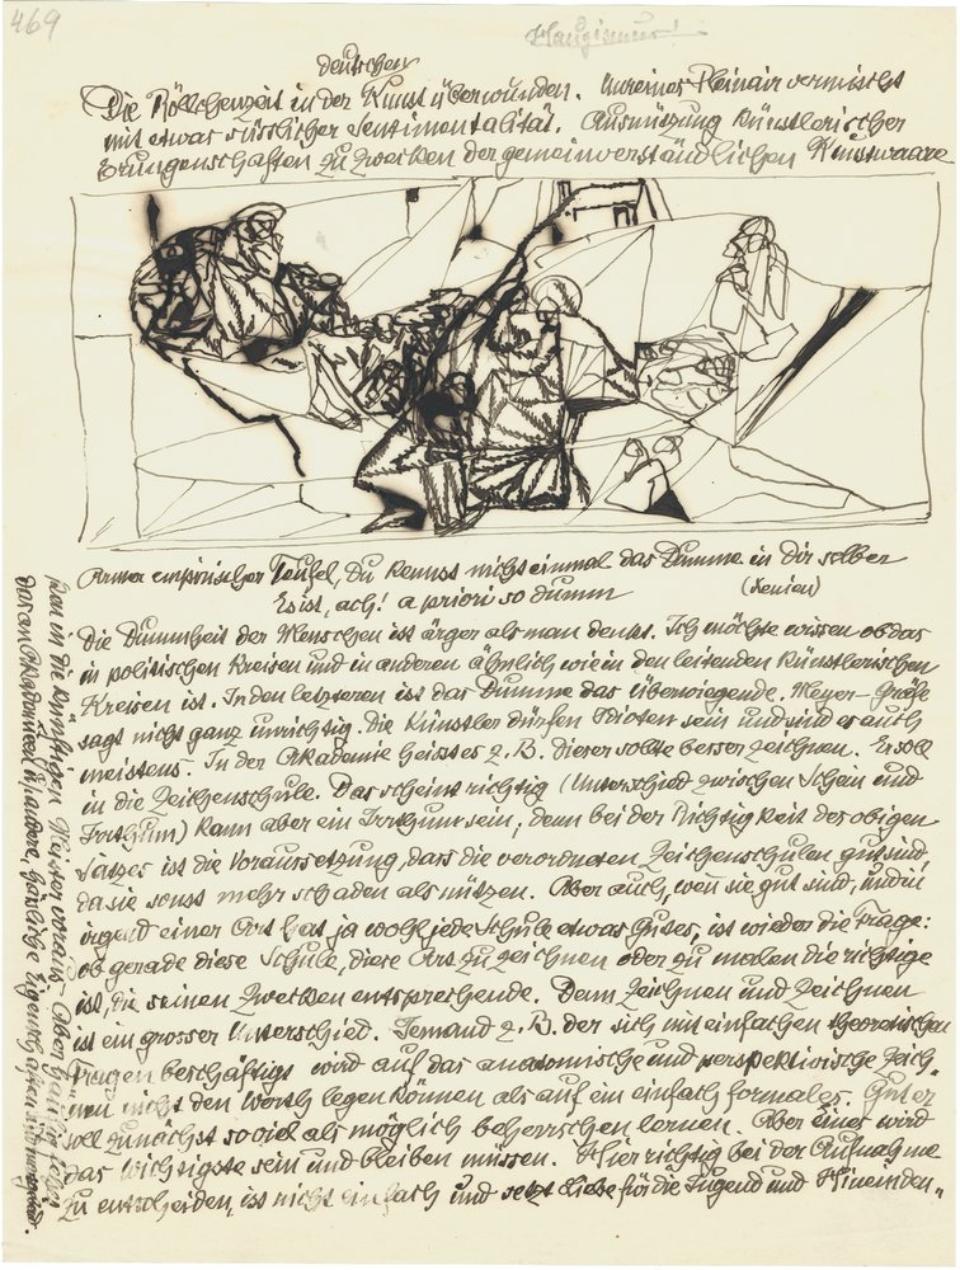 469
deutschen
Die Röllchenzeit in der Kunst überwunden. Unreines Pleinair vermischt
mit etwas süsslicher Sentimentalität. Ausnützung künstlerischer
Erungenschaften zu Zwecken der gemeinverständlichen Kunstwaare
Armer empirischer Teufel, Du kennst nicht einmal das Dumme in Dir selber
Es ist, ach! a priori so dumm (Xenien)
Die Dummheit der Menschen ist ärger als man denkt. Ich möchte wissen ob das
in politischen Kreisen und in anderen ähnlich wie in den leitenden künstlerischen
Kreisen ist. In den letzteren ist das Dumme das überwiegende. Meyer-Gräfe
sagt nicht ganz unrichtig. Die Künstler dürfen Idioten sein und sind es auch
meistens. In der Akademie heisst es z. B. dieser sollte besser zeichnen. Er soll
in die Zeichenschule. Das scheint richtig (Unterschied zwischen Schein und
Irrthum) kann aber ein Irrthum sein, denn bei der Richtigkeit des obigen
Satzes ist die Voraussetzung, dass die verordneten Zeichenschulen gut sind,
da sie sonst mehr schaden als nützen. Aber auch, wen̄ sie gut sind, und in
irgend einer Art hat ja wohl jede Schule etwas Gutes, ist wieder die Frage:
ob gerade diese Schule, diese Art zu zeichnen oder zu malen die richtige
ist, die seinen Zwecken entsprechende. Denn Zeichnen und Zeichnen
ist ein grosser Unterschied. Jemand z. B. der sich mit einfachen theoretischen
Fragen beschäftigt wird auf das anatomische und perspektivische Zeich„
nen nicht den Werth legen können als auf ein einfach formales. Guter
soll zunächst so viel als möglich beherrschen lernen. Aber eines wird
das Wichtigste sein und bleiben müssen. Hier richtig bei der Aufnahme
zu entscheiden, ist nicht einfach und setzt Liebe für die Jugend und Hineinden„
ken in die künftigen Meister voraus. Aber
daran Akademieen u. andere, hässliche Eigenschaften